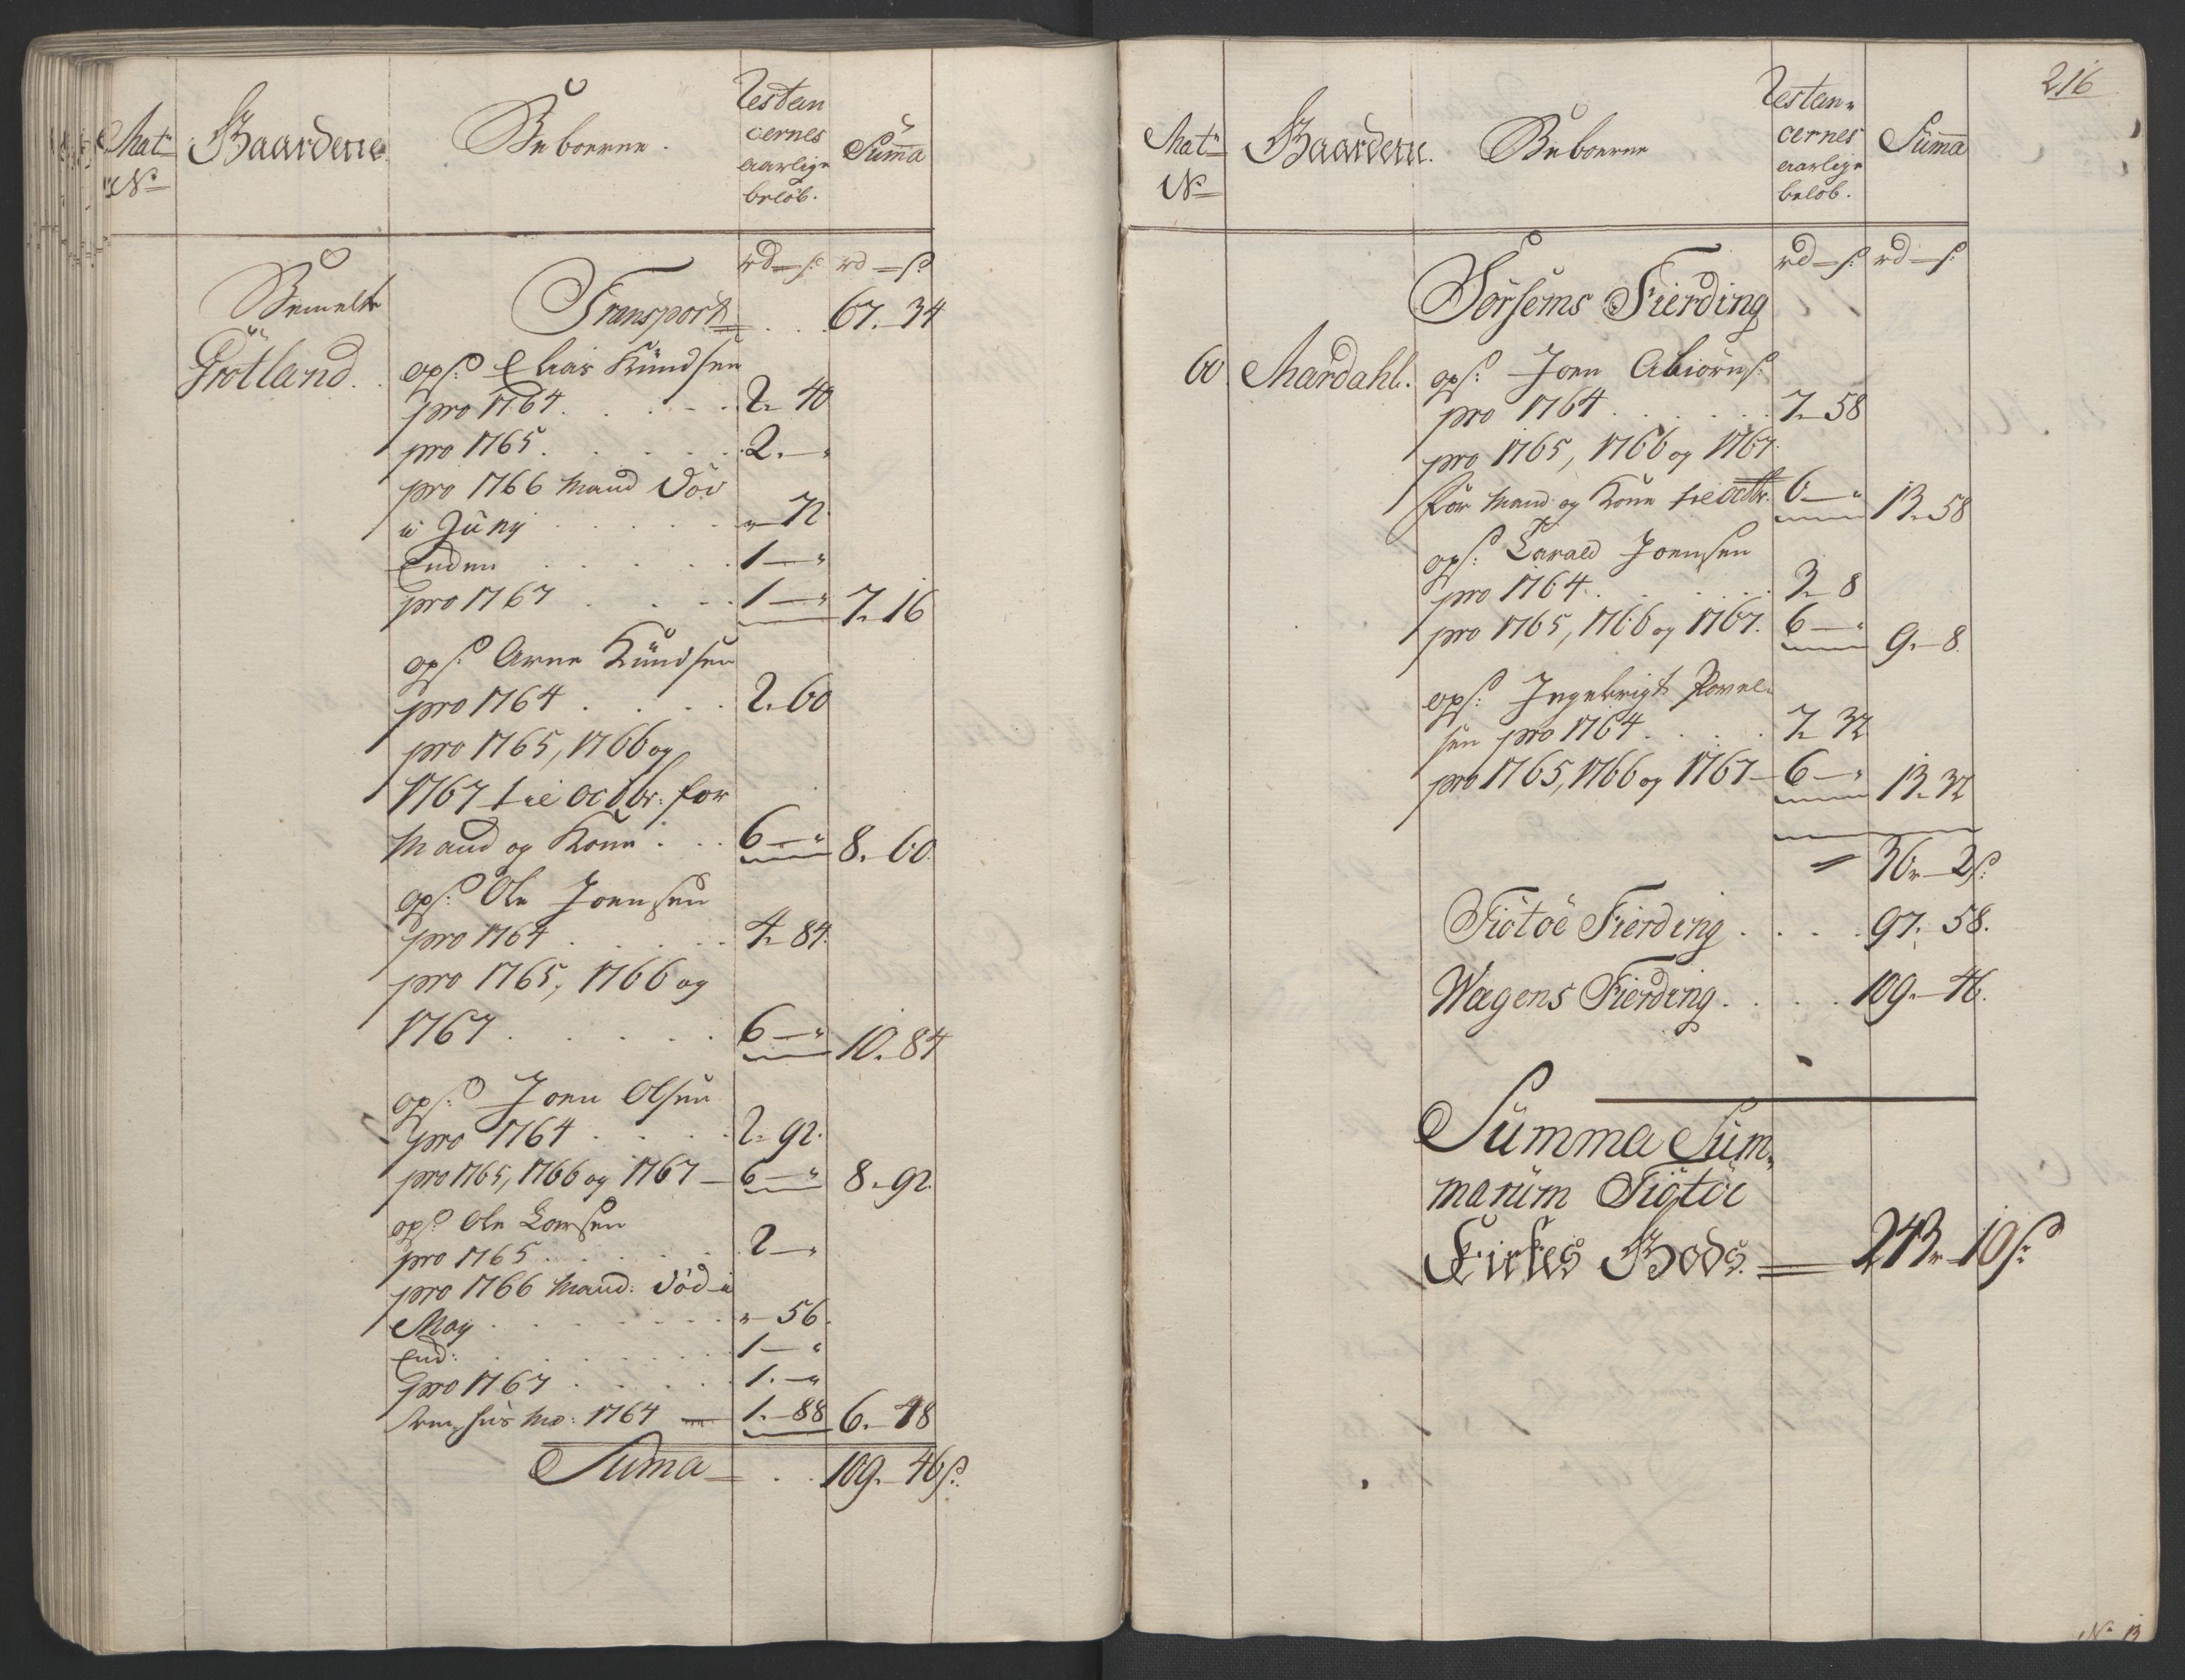 Mat:
No
Gaardene
Beboerne.
Restan
cernes
aarlige
beløb.
Summa
rd — s: rd — s:
Bemelte
Grötland.
Transport . . 67. 34
ops: Elias Knudsen
pro 1764 . . . 2. 40
pro 1765 . . . 2. — "
pro 1766 Mand død
i Junij . . . " — 72
Enden . . . 1 — "
pro 1767 . . . 1 — " 7. 16
ops: Arne Knudsen
pro 1764 . . . 2. 60
pro 1765, 1766 og
1767 til Octbr: for
Mand og Kone . . 6 — " 8. 60.
ops: Ole Joensen
pro 1764 . . . 4. 84.
pro 1765, 1766 og
1767 . . . 6 — " 10. 84
ops: Joen Olsen
pro 1764 . . . 2. 92.
pro 1765, 1766 og 1767 — 6 — " 8. 92.
ops: Ole Larsen
pro 1765 . . . 2 — "
pro 1766 Mand: død i
May . . . " — 56.
End: . . . 1 — "
pro 1767 . . . 1. — "
1764 — 1. — 88 6. 48
Suma — . . 109. 46 s:
216
Mat:
No
Gaardene.
Beboerne
Restan-
cernes
aarlige
beløb.
Summa
rd — s: rd — s:
Sörsems Fierding
60 Mardahl. ops: Joen Abiörns:
pro 1764 . . . 7. 58
pro 1765, 1766 og 1767.
for Mand og Kone til Octbr. 6 — " 13. 58
ops: Harald Joensen
pro 1764 . . . 3. 8
pro 1765, 1766 og 1767. 6 — " 9. — 8.
ops: Ingebrigt Povel-
sen pro 1764 . . . 7. 32
pro 1765, 1766 og 1767 — 6 — " 13. 32
36. — 2 s:
Tiötöe Fierding . . . 97. 58.
Wægens Fierding . . . 109. — 46.
Summa Sum-
marum Tiötöe
Kirkes Gods. — 243. 10 s:
No 13